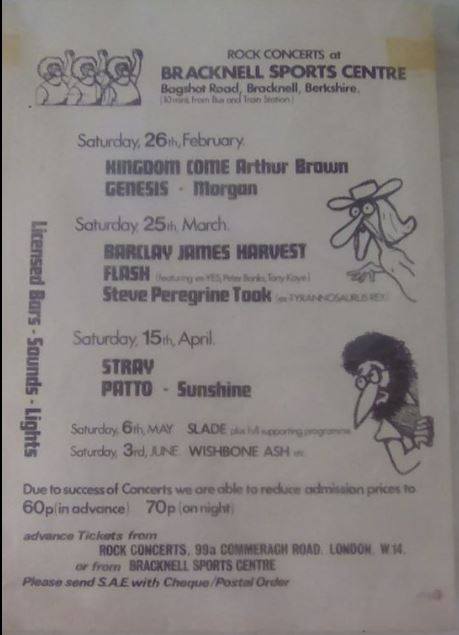 ROCK CONCERTS at
BRACKNELL SPORTS CENTRE
Bagshot Road, Bracknell, Berkshire.
(10 mins from Bus and Train Station)
Saturday, 26th, February.
KINGDOM COME Arthur Brown
GENESIS - Morgan
Saturday, 25th, March.
BARCLAY JAMES HARVEST
FLASH (featuring ex YES, Peter Banks, Tony Kaye)
Steve Peregrine Took (ex TYRANNOSAURUS REX)
Saturday, 15th, April.
STRAY
PATTO - Sunshine
Saturday, 6th, MAY SLADE plus full supporting programme
Saturday, 3rd, JUNE WISHBONE ASH etc.
Licensed Bars - Sounds - Lights
Due to success of Concerts we are able to reduce admission prices to
60p (in advance) 70p (on night)
advance Tickets from
ROCK CONCERTS, 99a COMMERAGH ROAD, LONDON, W14.
or from BRACKNELL SPORTS CENTRE
Please send S.A.E with Cheque/Postal Order